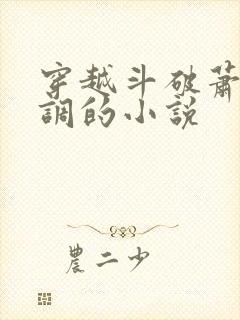 穿越斗破蕭
調的小説
農二少